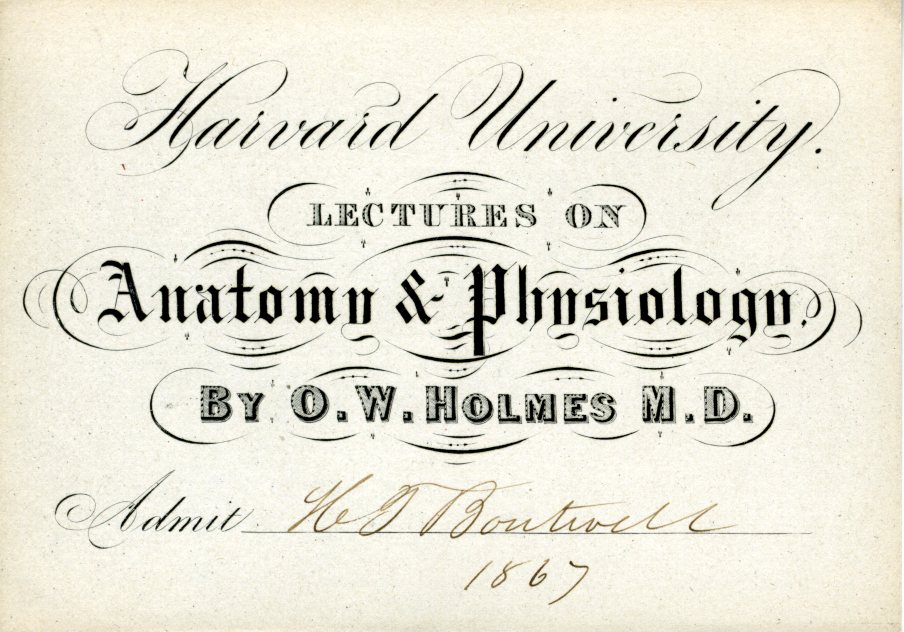 Harvard University.
LECTURES ON
Anatomy & Physiology.
BY O. W. HOLMES M.D.
Admit H T Boutwell
1867